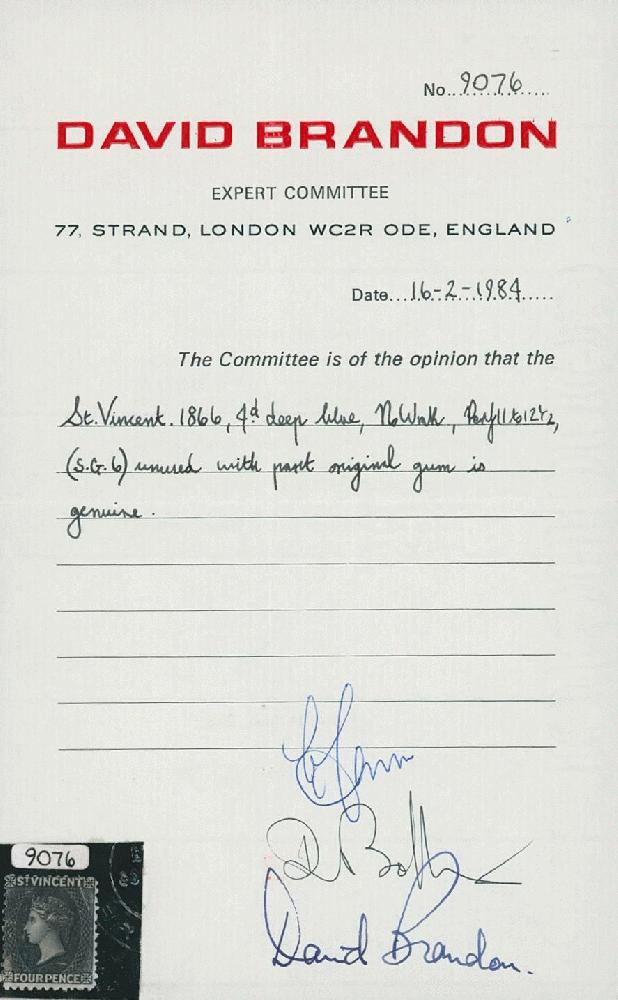 No. 9076
DAVID BRANDON
EXPERT COMMITTEE
77, STRAND, LONDON WC2R ODE, ENGLAND
Date 16-2-1984
The Committee is of the opinion that the
St. Vincent. 1866, 4d deep blue, No Wmk, Perf 11 to 12½,
(S.G. 6) unused with part original gum is
genuine.
David Brandon.
9076
ST VINCENT
FOUR PENCE